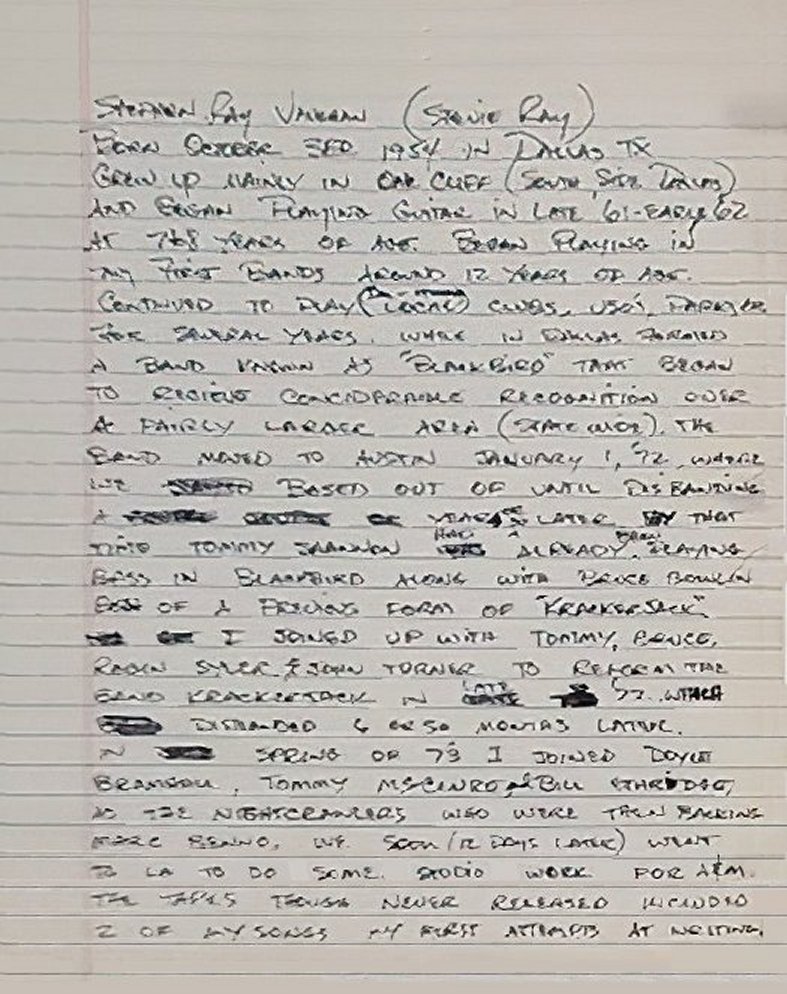 STEPHEN RAY VAUGHAN (STEVIE RAY)
BORN OCTOBER 3RD 1954 IN DALLAS TX
GREW UP MAINLY IN OAK CLIFF (SOUTH SIDE DALLAS)
AND BEGAN PLAYING GUITAR IN LATE '61-EARLY '62
AT 7&8 YEARS OF AGE. BEGAN PLAYING IN
MY FIRST BANDS AROUND 12 YEARS OF AGE.
CONTINUED TO PLAY (LOCAL) CLUBS, USO'S,
FOR SEVERAL YEARS. WHILE IN DALLAS FORMED
A BAND KNOWN AS "BLACKBIRD" THAT BEGAN
TO RECIEVE CONCIDERABLE RECOGNITION OVER
A FAIRLY LARGER AREA (STATE WIDE). THE
BAND MOVED TO AUSTIN JANUARY 1, '72, WHERE
WE BASED OUT OF UNTIL DISBANDING
A YEAR LATER BY THAT
TIME TOMMY SHANNON HAD ALREADY BEEN PLAYING
BASS IN BLACKBIRD ALONG WITH BRUCE BOWLIN
OF A PREVIOUS FORM OF "KRACKERJACK"
I JOINED UP WITH TOMMY, BRUCE,
ROBIN SYLER & JOHN TURNER TO REFORM THE
BAND KRACKERJACK IN LATE '72 WHICH
DISBANDED 6 OR SO MONTHS LATER.
IN SPRING OF 73 I JOINED DOYLE
BRAMHALL, TOMMY & BILL ETHRIDGE,
AS THE NIGHTCRAWLERS WHO WERE THEN BACKING
MARC BENNO, WE SOON (12 DAYS LATER) WENT
TO LA TO DO SOME STUDIO WORK FOR A&M.
THE TAPES THOUGH NEVER RELEASED INCLUDED
2 OF MY SONGS MY FIRST ATTEMPTS AT WRITING,